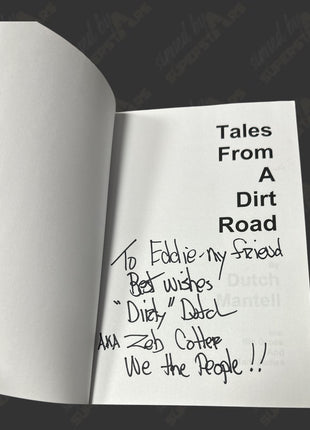 Tales
From
A
Dirt
Road
To Eddie-my friend
Best wishes
Dutch
Mantell
"Dirty" Dutch
AKA Zeb Colter
We the People!!